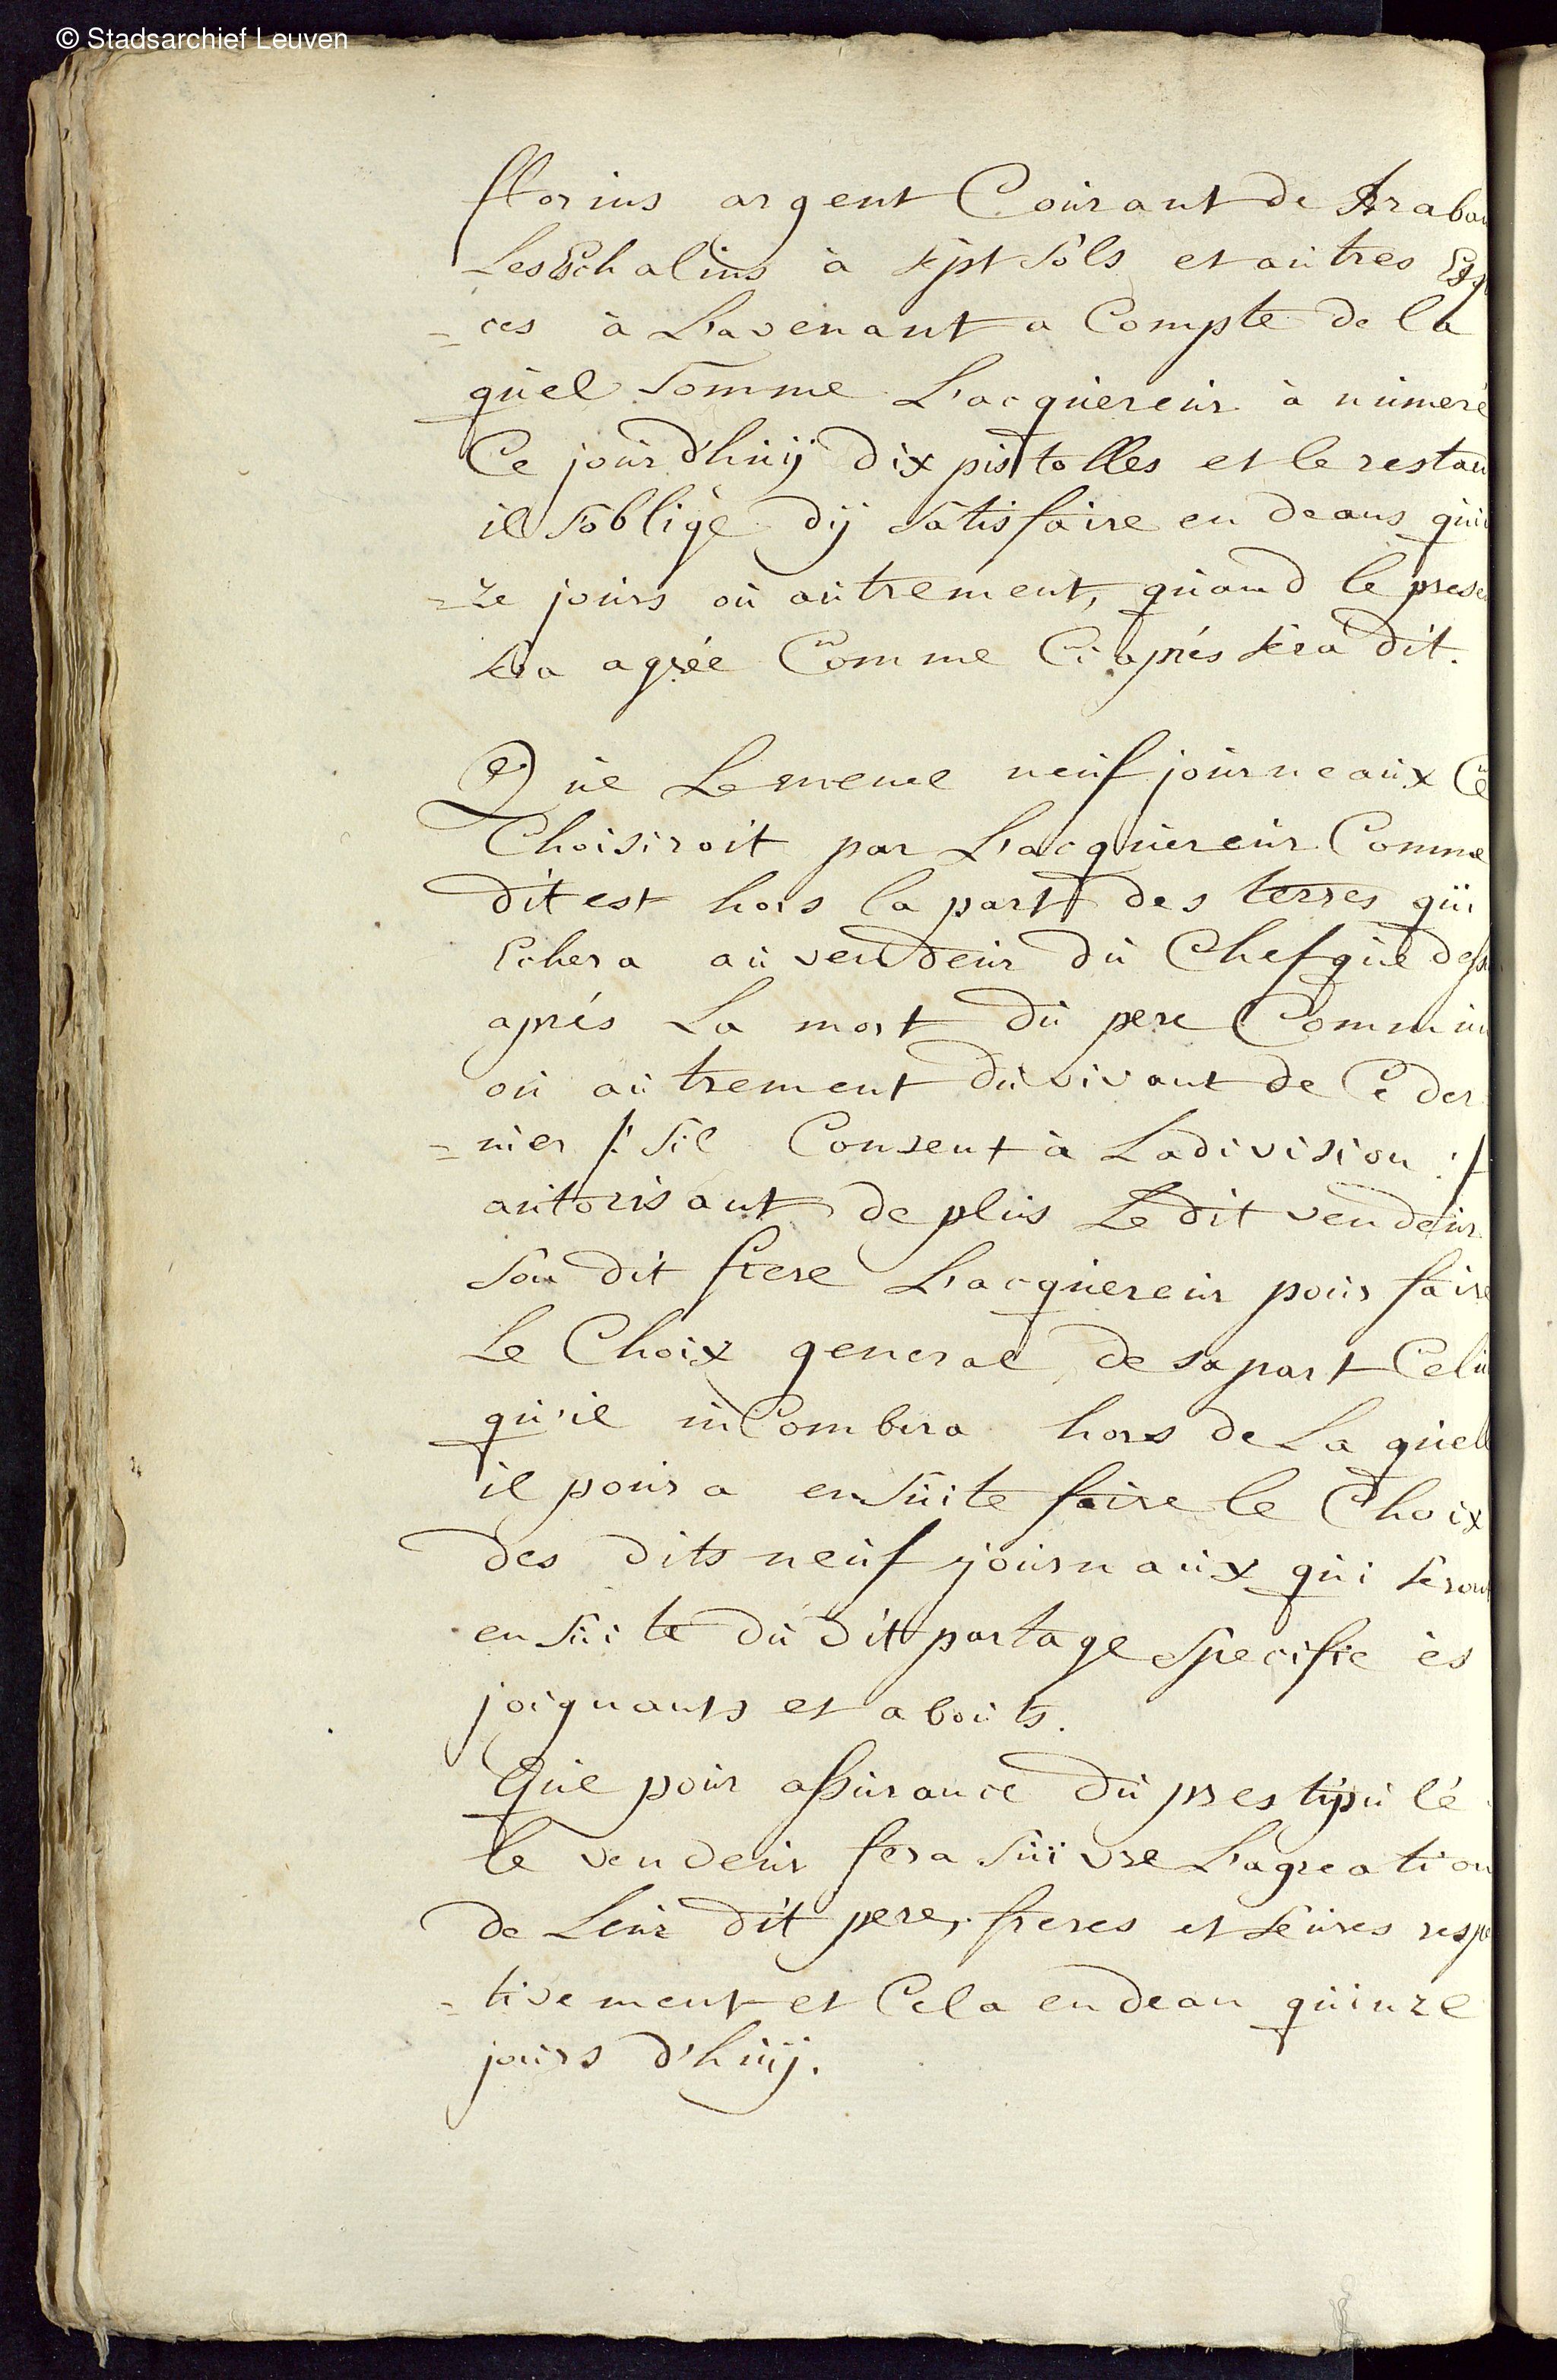 © Stadsarchief Leuven
florins argent Courant de Braban
Les Echalins à sept sols et autres Esp
= ces à L'avenant a Compte de la
quel somme L'acquereur à numeré
Ce jourd'huij dix pistolles et le restan
il s'oblige dij satisfaire en deans quin
= ze jours ou autrement, quand le prese
sera agrée Comme Ci aprés sera dit.
Que Le meme neuf journeaux Ce
Choisiroit par L'acquereur Comme
dit est hors la part des terres qui
Echera au vendeur du Chef que dess
aprés La mort du pere Commun
ou autrement du vivant de Ce der
= nier /: s'il Consent à La division :/
autorisant de plus Le dit vendeur
son dit frere L'acquereur pour faire
Le Choix general de sa part Celu
qu'il inCombera hors de La quel
il poura ensuite faire le Choix
des dits neuf journaux qui seront
ensuite du dit partage specifie és
joignants et abouts.
Que pour assurance du prestipulé
le vendeur fera suivre L'agreation
de Leur dit pere, freres et seures resp
= tivement et Cela en dean quinze
jours d'huij.